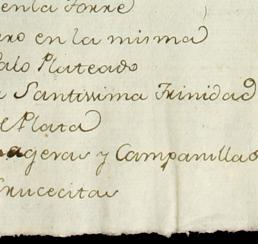 en la Torre
en la misma
Palo Plateado
Santissima Trinidad
Plata
y Campanillas
Crucecitas